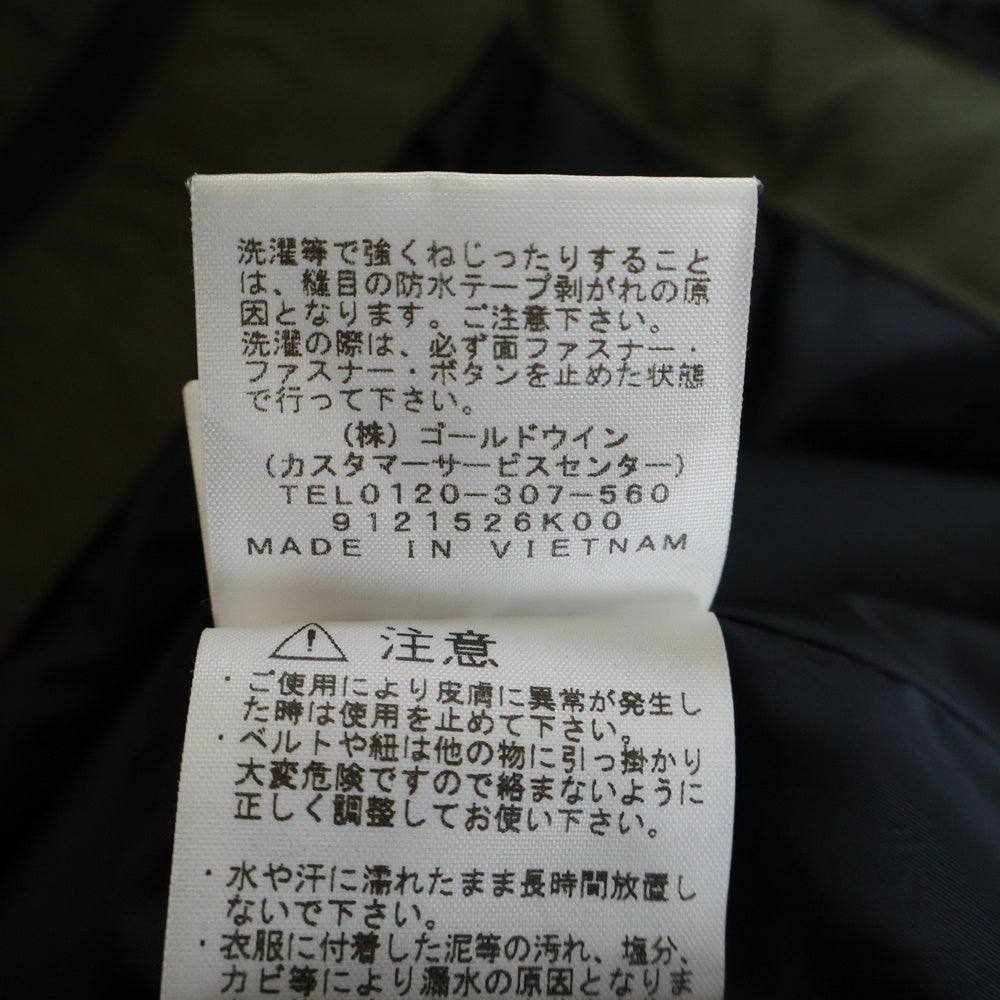 洗濯等で強くねじったりすること
は、縫目の防水テープ剥がれの原
因となります。ご注意下さい。
洗濯の際は、必ず面ファスナー・
ファスナー・ボタンを止めた状態
で行って下さい。
(株)ゴールドウイン
(カスタマーサービスセンター)
TEL0120-307-560
9121526K00
MADE IN VIETNAM
注意
・ご使用により皮膚に異常が発生し
た時は使用を止めて下さい。
・ベルトや紐は他の物に引っ掛かり
大変危険ですので絡まないように
正しく調整してお使い下さい。
・水や汗に濡れたまま長時間放置し
ないで下さい。
・衣服に付着した泥等の汚れ、塩分、
カビ等により漏水の原因となりま